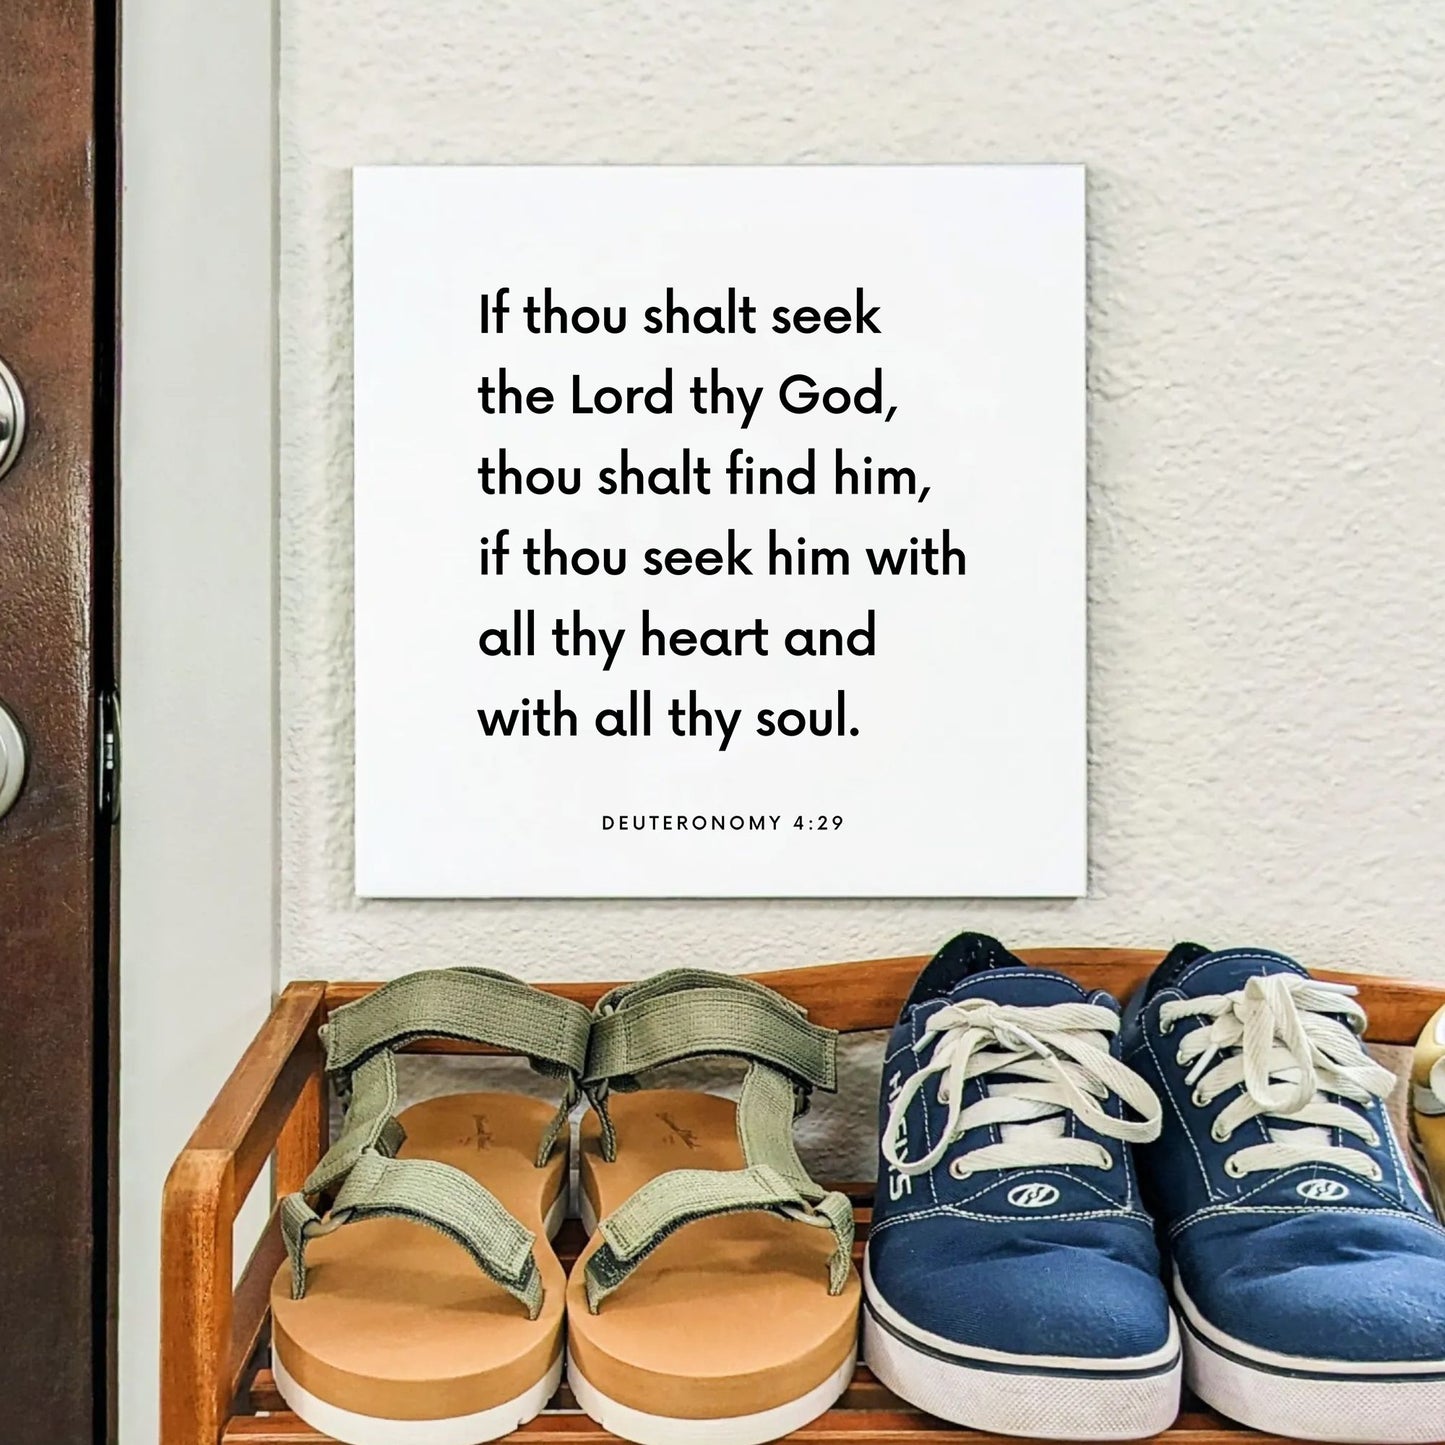 If thou shalt seek
the Lord thy God,
thou shalt find him,
if thou seek him with
all thy heart and
with all thy soul.
DEUTERONOMY 4:29